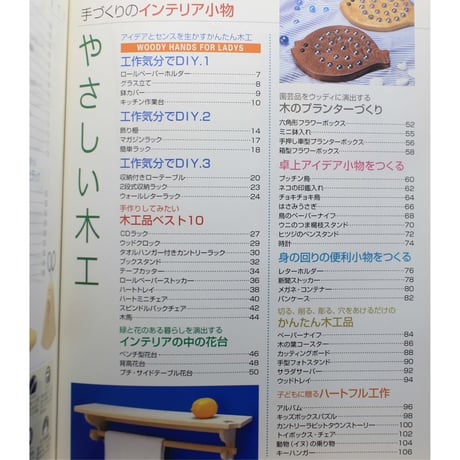 手づくりのインテリア小物
やさしい木工
アイデアとセンスを生かすかんたん木工
WOODY HANDS FOR LADYS
工作気分でDIY.1
ロールペーパーホルダー 7
グラス立て 8
鉢カバー 9
キッチン作業台 10
工作気分でDIY.2
飾り棚 14
マガジンラック 17
簡単ラック 18
工作気分でDIY.3
収納付きローテーブル 20
2段式収納ラック 23
ウォールレターラック 24
手作りしてみたい
木工品ベスト10
CDラック 27
ウッドクロック 29
タオルハンガー付きカントリーラック 30
ブックスタンド 32
テープカッター 34
ロールペーパーストッカー 36
ハートトレイ 38
ハートミニチェア 40
スピンドルバックチェア 42
木馬 44
緑と花のある暮らしを演出する
インテリアの中の花台
ベンチ型花台 46
背高花台 48
プチ・サイドテーブル花台 50
園芸品をウッディに演出する
木のプランターづくり
六角形フラワーボックス 52
ミニ鉢入れ 55
手押し車型プランターボックス 56
箱型フラワーボックス 58
卓上アイデア小物をつくる
プッチン鳥 60
ネコの印鑑入れ 62
チョキチョキ鳥 64
はさみうさぎ 66
鳥のペーパーナイフ 68
ウニのつま楊枝スタンド 70
ヒッジのペンスタンド 72
時計 74
身の回りの便利小物をつくる
レターホルダー 76
新聞ストッカー 78
メガネ・コンテナー 80
パンケース 82
切る、削る、彫る、穴をあけるだけの
かんたん木工品
ペーパーナイフ 84
木の葉コースター 86
カッティングボード 88
手型フォトスタンド 90
サラダサーバー 92
ウッドトレイ 94
子どもに贈るハートフル工作
アルバム 96
キッズボックスパズル 98
カントリーラビットタウンストーリー 100
トイボックス・チェア 102
動物(イヌ)の乗り物 104
キーハンガー 106